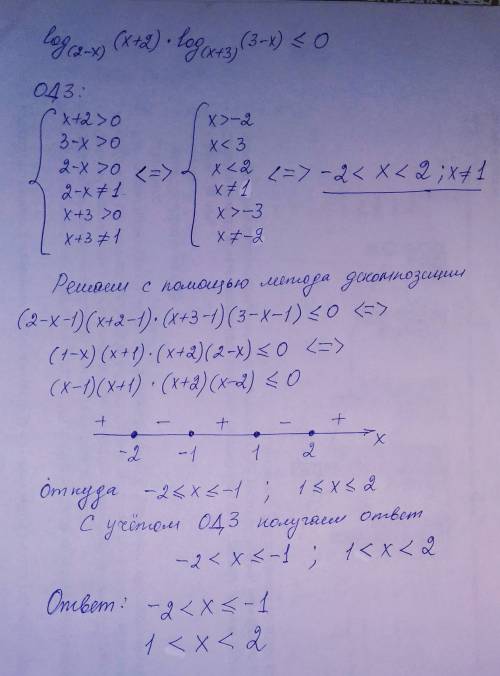 log₍₂₋ₓ₎(x+2) · log₍ₓ₊₃₎(3-x) ≤ 0
ОДЗ:
{ x+2>0 <=> { x>-2 <=> -2 < x < 2 ; x≠1
3-x>0 x<3
2-x>0 x<2
2-x≠1 x≠1
x+3>0 x>-3
x+3≠1 x≠-2
Решаем с помощью метода декомпозиции
(2-x-1)(x+2-1)·(x+3-1)(3-x-1) ≤ 0 <=>
(1-x)(x+1)·(x+2)(2-x) ≤ 0 <=>
(x-1)(x+1) · (x+2)(x-2) ≤ 0
+ - + - +
-2 -1 1 2 x
откуда -2≤x≤-1 ; 1≤x≤2
С учётом ОДЗ получаем ответ
-2 < x ≤ -1 ; 1 < x < 2
Ответ: -2 < x ≤ -1
1 < x < 2